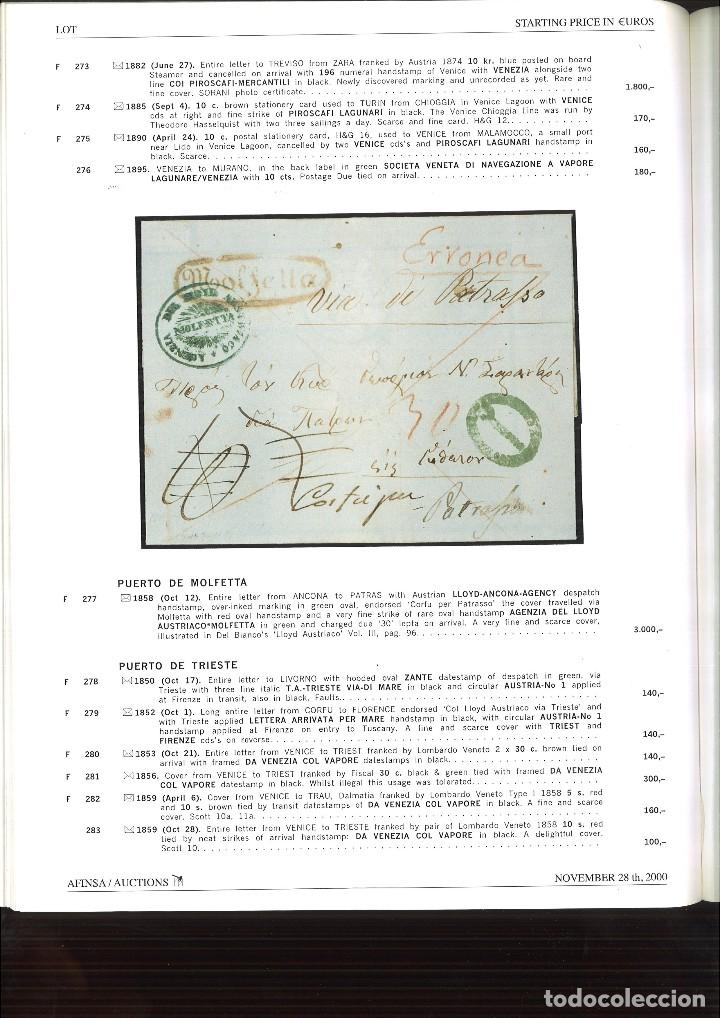 LOT
STARTING PRICE IN €UROS
F 273 1882 (June 27). Entire letter to TREVISO from ZARA franked by Austria 1874 10 kr. blue posted on board
Steamer and cancelled on arrival with 196 numeral handstamp of Venice with VENEZIA alongside two
line COI PIROSCAFI-MERCANTILI in black. Newly discovered marking and unrecorded as yet. Rare and
fine cover. SORANI photo certificate. 1.800,–
F 274 1885 (Sept 4). 10 c. brown stationery card used to TURIN from CHIOGGIA in Venice Lagoon with VENICE
cds at right and fine strike of PIROSCAFI LAGUNARI in black. The Venice Chioggia Line was run by
Theodore Hasselquist with two three sailings a day. Scarce and fine card. H&G 12. 170,–
F 275 1890 (April 24). 10 c. postal stationery card, H&G 16, used to VENICE from MALAMOCCO, a small port
near Lido in Venice Lagoon, cancelled by two VENICE cds's and PIROSCAFI LAGUNARI handstamp in
black. Scarce. 160,–
276 1895. VENEZIA to MURANO, in the back label in green SOCIETA VENETA DI NAVEGAZIONE A VAPORE
LAGUNARE/VENEZIA with 10 cts. Postage Due tied on arrival. 180,–
Erronea
Molfetta
via di Patrasso
AGENZIA DEL LLOYD AUSTRIACO
MOLFETTA
Πρὸς τὸν Κύριον
διὰ Πατρῶν
30
εἰς
Patrasso
PUERTO DE MOLFETTA
F 277 1858 (Oct 12). Entire letter from ANCONA to PATRAS with Austrian LLOYD-ANCONA-AGENCY despatch
handstamp, over-inked marking in green oval, endorsed 'Corfu per Patrasso' the cover travelled via
Molfetta with red oval handstamp and a very fine strike of rare oval handstamp AGENZIA DEL LLOYD
AUSTRIACO*MOLFETTA in green and charged due '30' lepta on arrival. A very fine and scarce cover,
illustrated in Del Bianco's 'Lloyd Austriaco' Vol. III, pag. 96. 3.000,–
PUERTO DE TRIESTE
F 278 1850 (Oct 17). Entire letter to LIVORNO with hooded oval ZANTE datestamp of despatch in green, via
Trieste with three line italic T.A.-TRIESTE VIA-DI MARE in black and circular AUSTRIA-No 1 applied
at Firenze in transit, also in black, Faults. 140,–
F 279 1852 (Oct 1). Long entire letter from CORFU to FLORENCE endorsed 'Col Lloyd Austriaco via Trieste' and
with Trieste applied LETTERA ARRIVATA PER MARE handstamp in black, with circular AUSTRIA-No 1
handstamp applied at Firenze on entry to Tuscany. A fine and scarce cover with TRIEST and
FIRENZE cds's on reverse. 140,–
F 280 1853 (Oct 21). Entire letter from VENICE to TRIEST franked by Lombardo Veneto 2 x 30 c. brown tied on
arrival with framed DA VENEZIA COL VAPORE datestamps in black. 140,–
F 281 1856. Cover from VENICE to TRIEST franked by Fiscal 30 c. black & green tied with framed DA VENEZIA
COL VAPORE datestamp in black. Whilst illegal this usage was tolerated. 300,–
F 282 1859 (April 6). Cover from VENICE to TRAU, Dalmatia franked by Lombardo Veneto Type I 1858 5 s. red
and 10 s. brown tied by transit datestamps of DA VENEZIA COL VAPORE in black. A fine and scarce
cover. Scott 10a, 11a. 160,–
283 1859 (Oct 28). Entire letter from VENICE to TRIESTE franked by pair of Lombardo Veneto 1858 10 s. red
tied by neat strikes of arrival handstamp: DA VENEZIA COL VAPORE in black. A delightful cover.
Scott 10. 100,–
AFINSA / AUCTIONS
NOVEMBER 28 th, 2000
todocoleccion